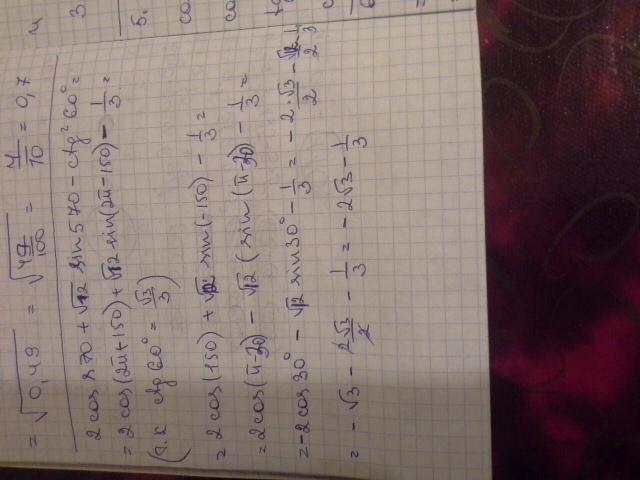 = √0,49 = √49/100 = 7/10 = 0,7
5.
2 cos 570 + √12 sin 570 - ctg² 60° =
= 2 cos(2π+150) + √12 sin(2π-150) - 1/3 =
(т.к ctg 60° = √3/3)
= 2 cos(150) + √12 sin(-150) - 1/3 =
= 2 cos(π-30) - √12 (sin(π-30) - 1/3 =
= -2 cos 30° - √12 sin 30° - 1/3 = - 2·√3/2 - √12/2 1/3
= - √3 - 2√3/2 - 1/3 = - 2√3 - 1/3